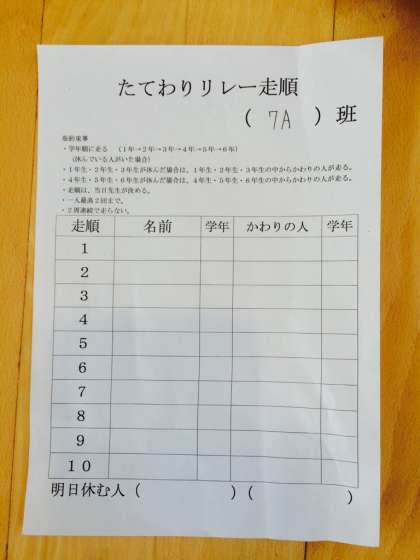 たてわりリレー走順
( 7A ) 班
・学年順に走る (1年→2年→3年→4年→5年→6年)
(休んでいる人がいた場合)
・1年生・2年生・3年生が休んだ場合は、1年生・2年生・3年生の中からかわりの人が走る。
・4年生・5年生・6年生が休んだ場合は、4年生・5年生・6年生の中からかわりの人が走る。
・走順は、当日先生が決める。
・一人最高2回まで。
・2周連続で走らない。
走順 名前 学年 かわりの人 学年
1
2
3
4
5
6
7
8
9
10
明日休む人 ( ) ( )